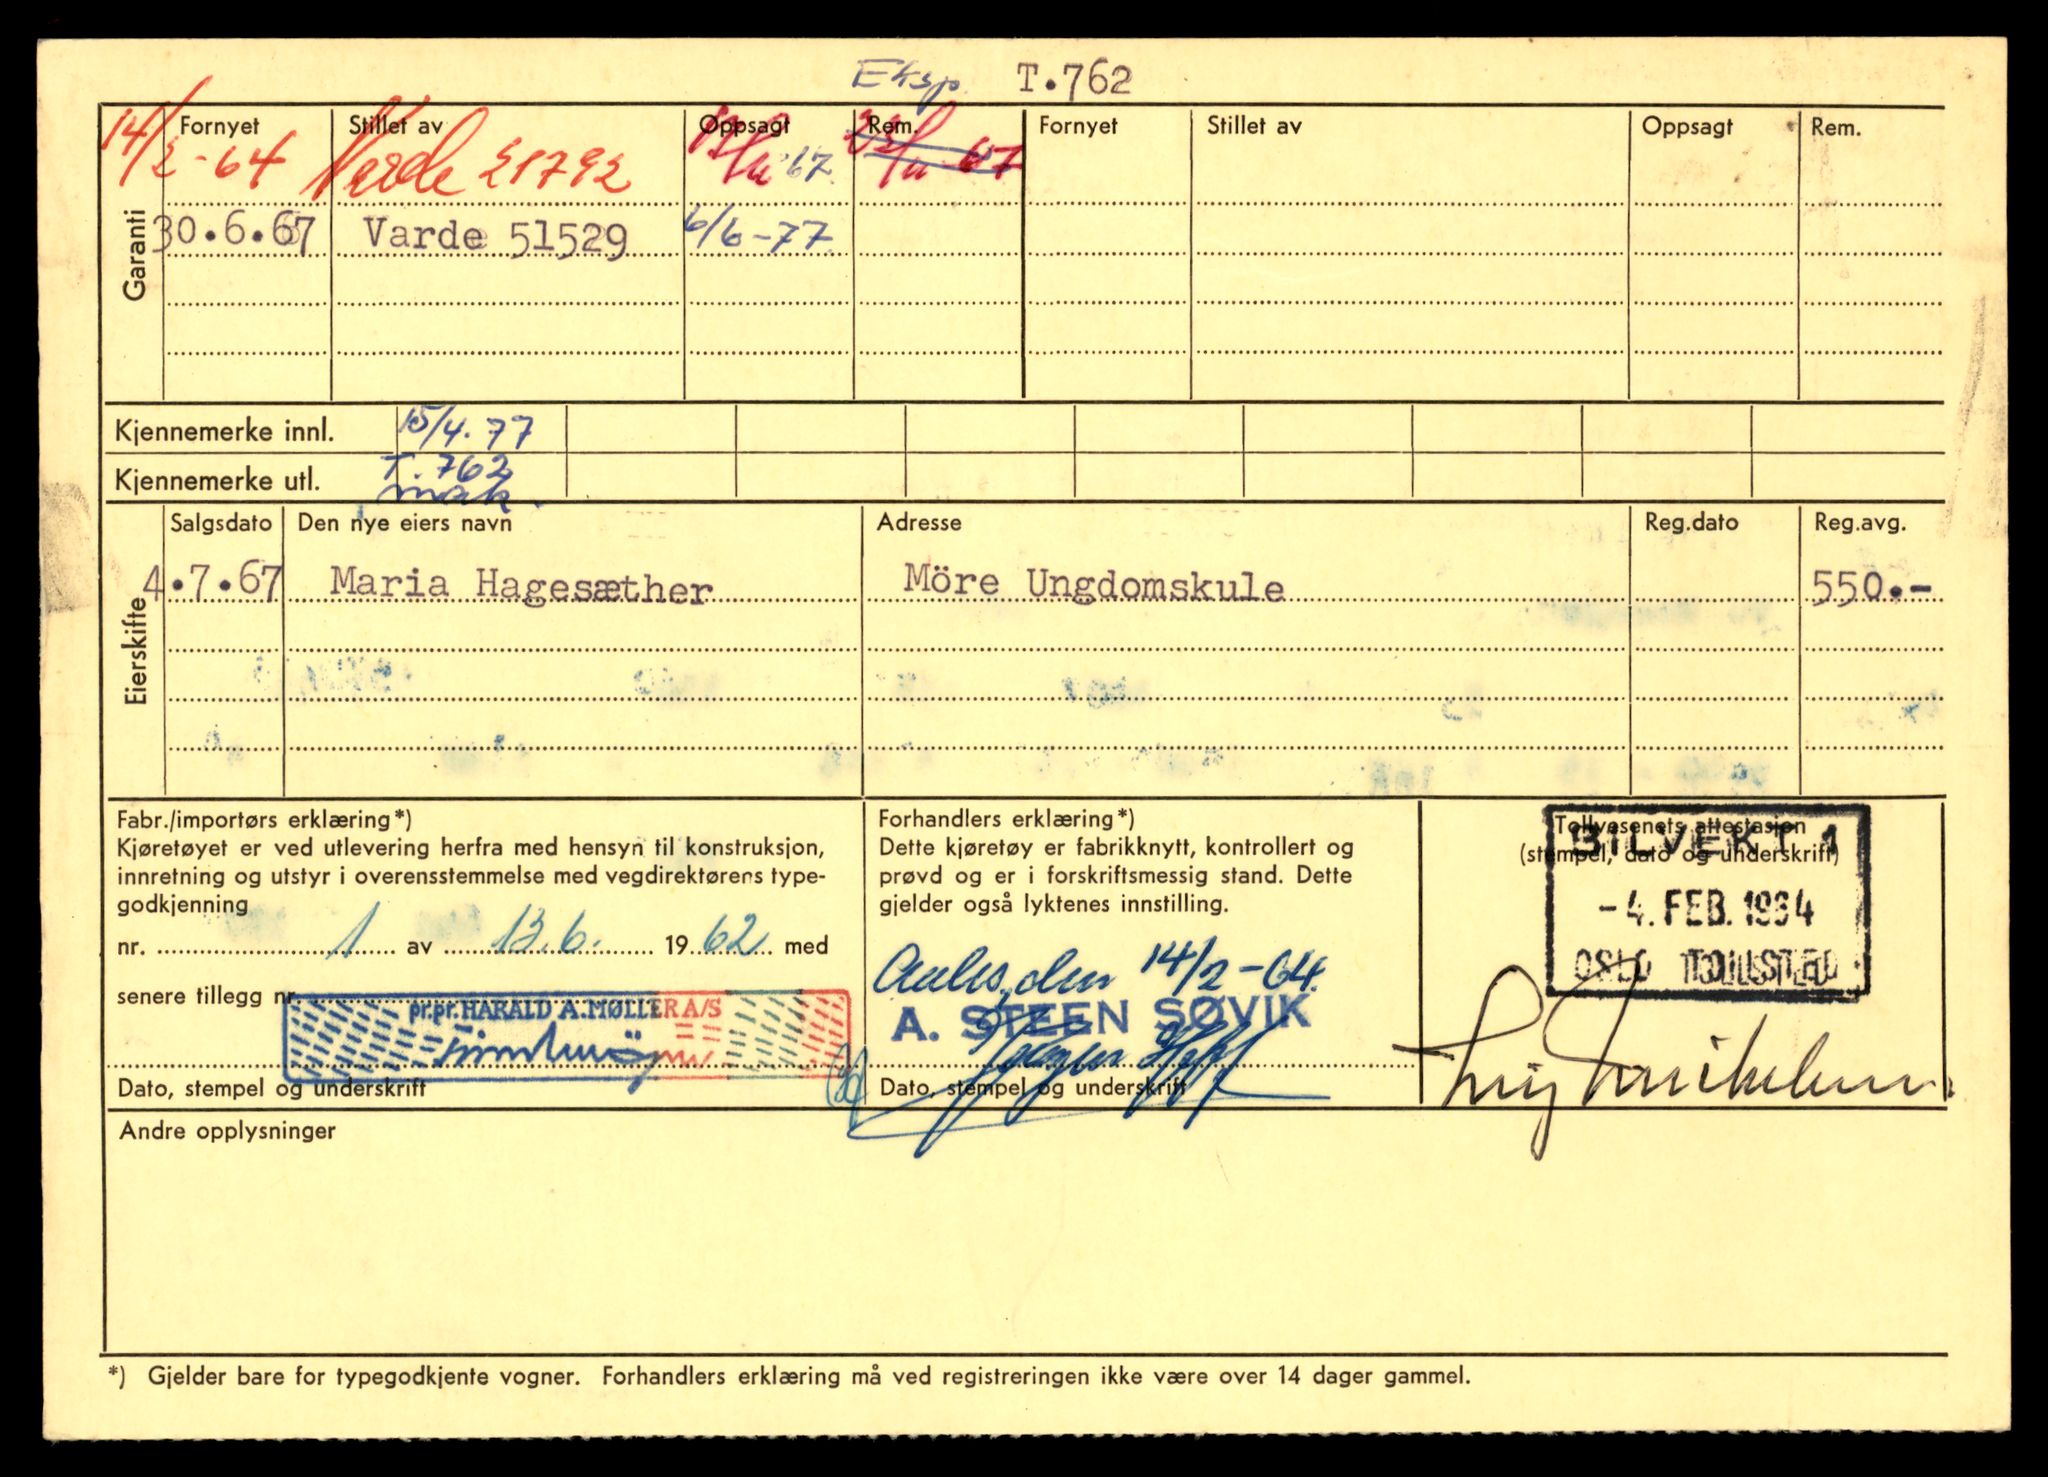 Eksp T.762
Garanti
Fornyet Stillet av Oppsagt Rem. Fornyet Stillet av Oppsagt Rem.
14/2-64 Varde 21792 67 67
30.6.67 Varde 51529 6/6-77
Kjennemerke innl. 15/4.77
Kjennemerke utl. T.762
mak.
Eierskifte
Salgsdato Den nye eiers navn Adresse Reg.dato Reg.avg.
4.7.67 Maria Hagesæther Möre Ungdomskule 550.-
Fabr./importørs erklæring*)
Kjøretøyet er ved utlevering herfra med hensyn til konstruksjon,
innretning og utstyr i overensstemmelse med vegdirektørens type-
godkjenning
nr. 1 av 13.6. 1962 med
senere tillegg nr.
pr.pr. HARALD A. MØLLER A/S
Dato, stempel og underskrift
Forhandlers erklæring*)
Dette kjøretøy er fabrikknytt, kontrollert og
prøvd og er i forskriftsmessig stand. Dette
gjelder også lyktenes innstilling.
den 14/2-64.
A. STEEN SØVIK
Dato, stempel og underskrift
Tollvesenets attestasjon
(stempel, dato og underskrift)
BILVEKT 1
-4. FEB. 1964
OSLO TOLLSTED
Andre opplysninger
*) Gjelder bare for typegodkjente vogner. Forhandlers erklæring må ved registreringen ikke være over 14 dager gammel.